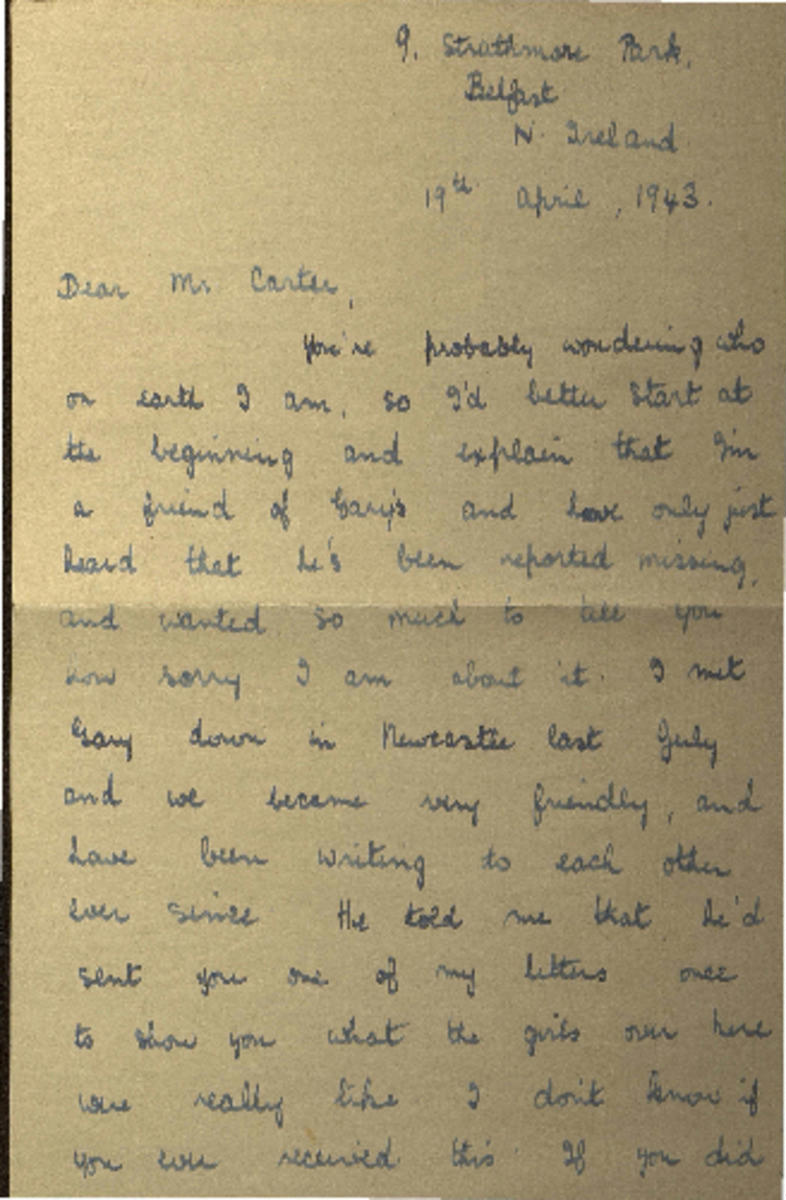 9. Strathmore Park,
Belfast
N. Ireland
19th April, 1943.
Dear Mr Carter,
You're probably wondering who
on earth I am, so I'd better start at
the beginning and explain that I'm
a friend of Gary's and have only just
heard that he's been reported missing,
and wanted so much to tell you
how sorry I am about it. I met
Gary down in Newcastle last July
and we became very friendly, and
have been writing to each other
ever since He told me that he'd
sent you one of my letters once
to show you what the girls over here
were really like I don't know if
you ever received this If you did